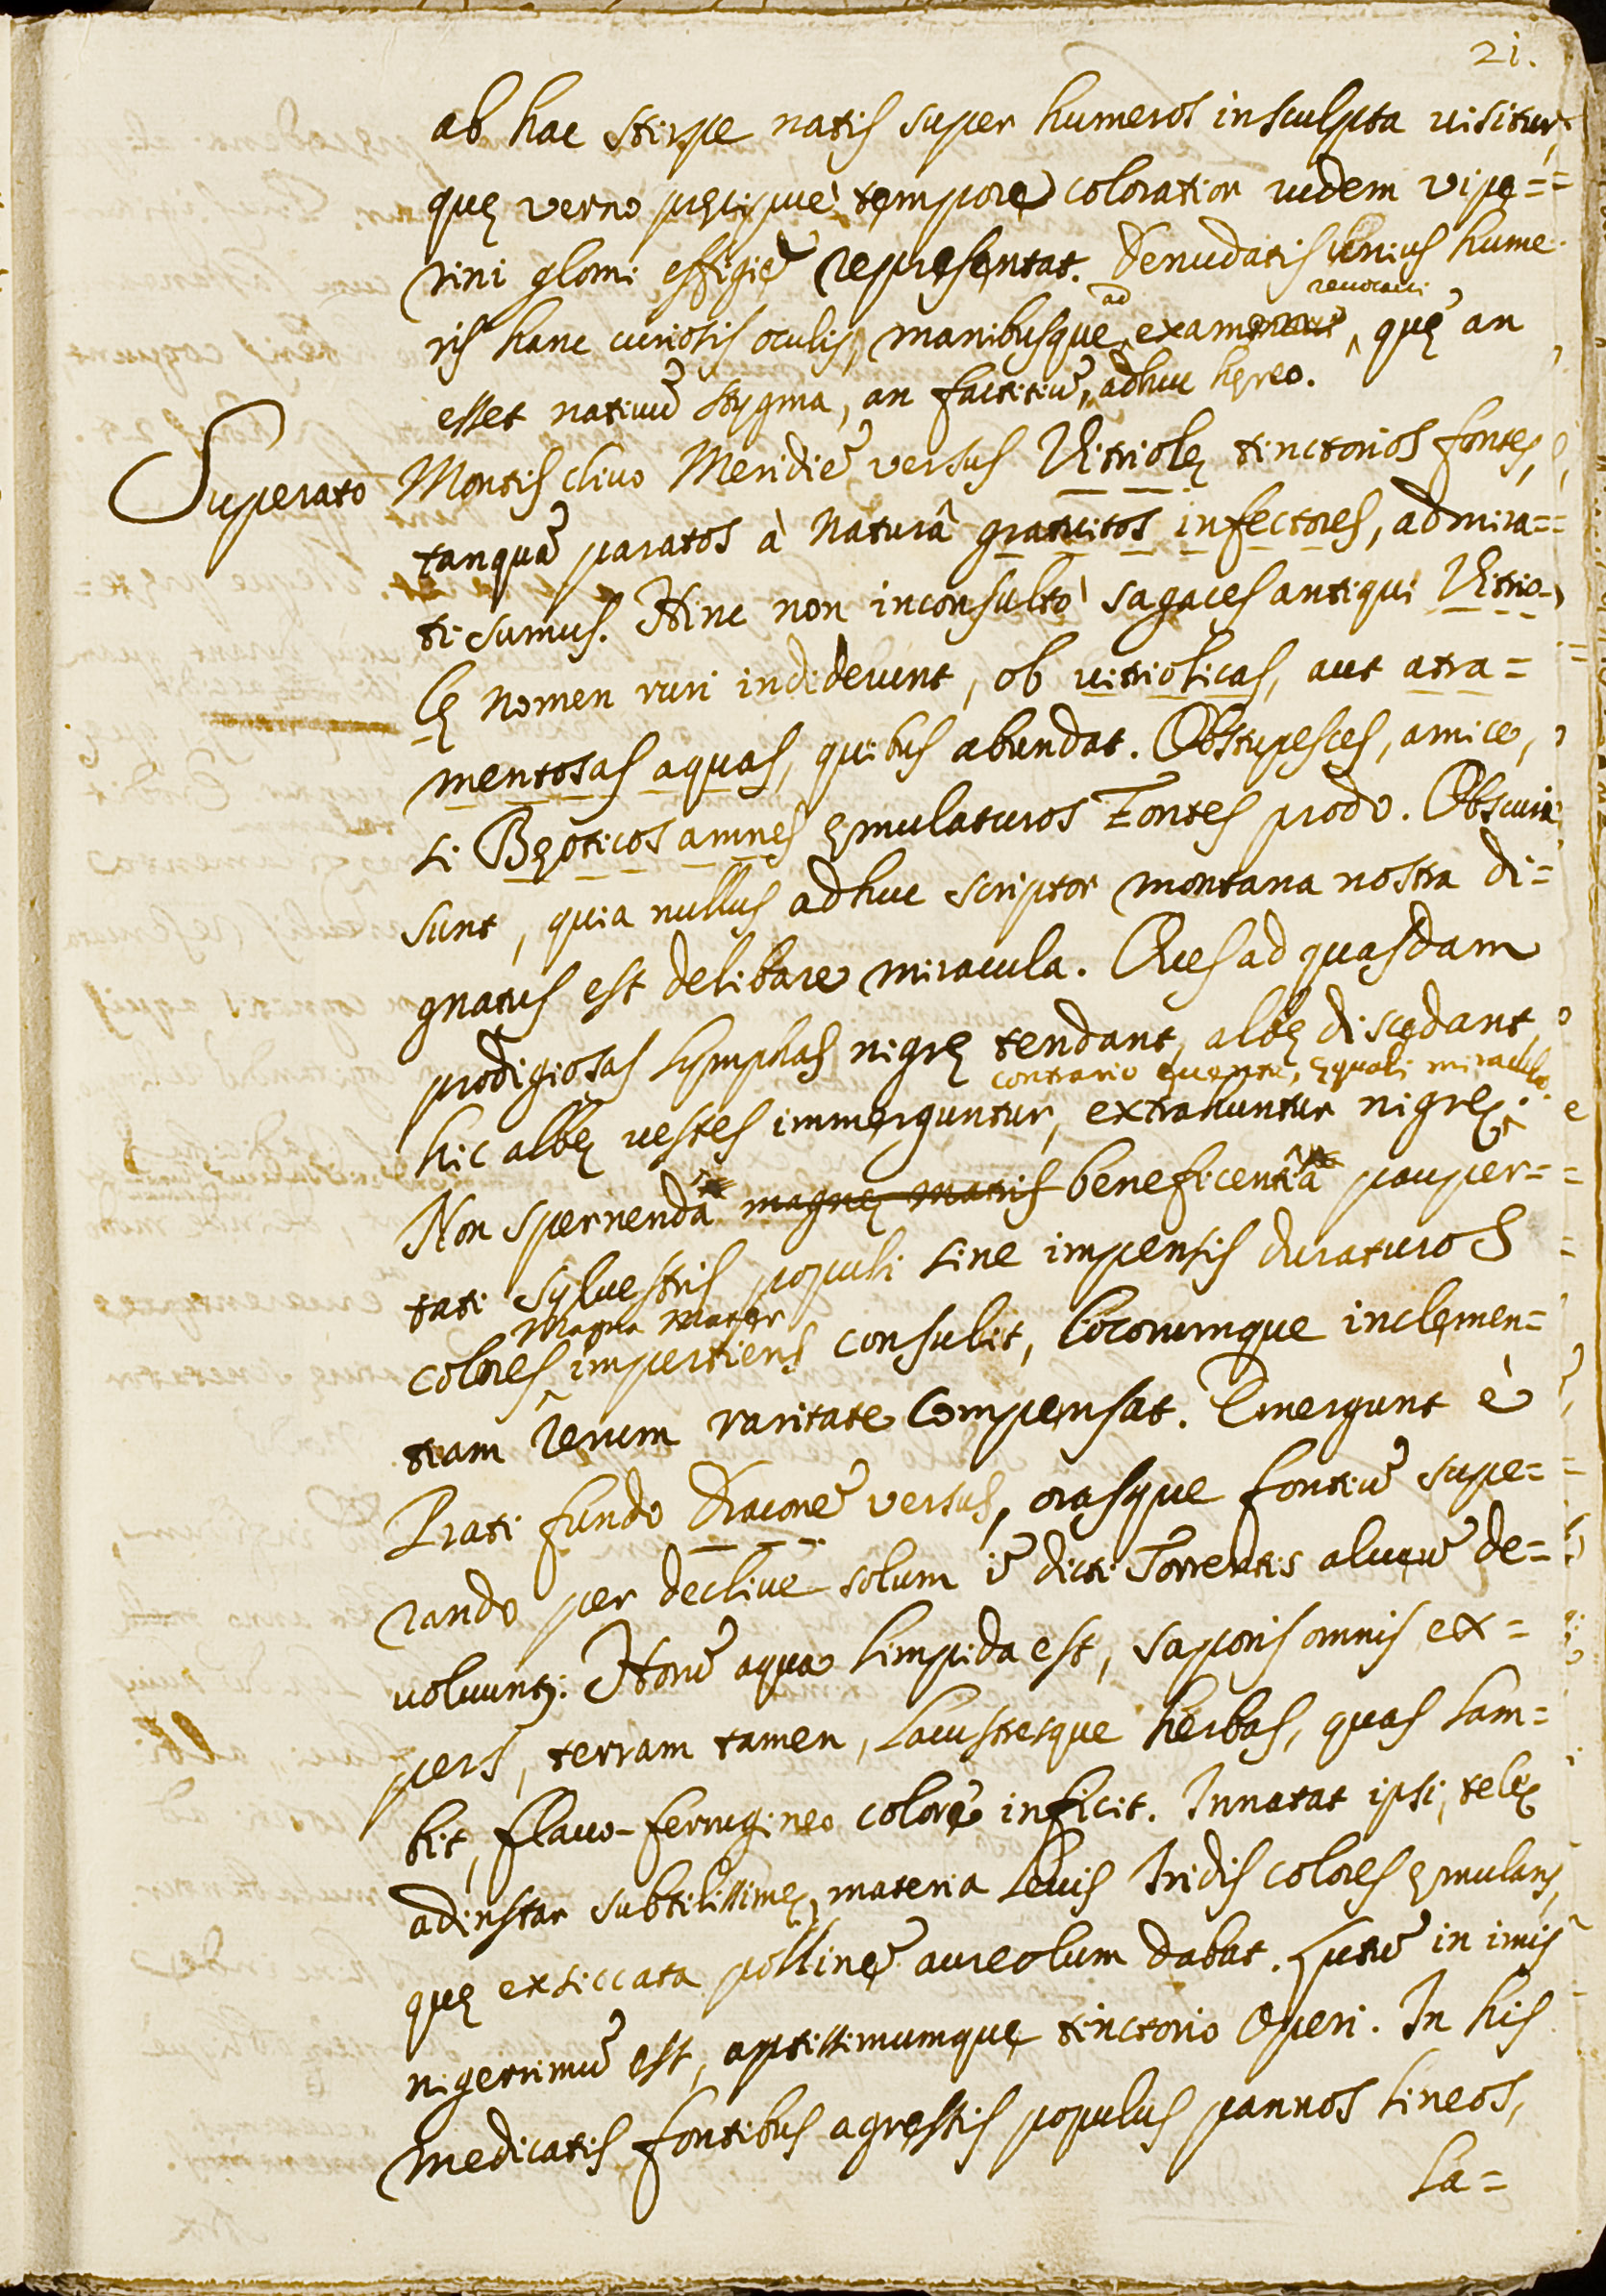 21.
ab hac stirpe natis super humeros insculpta uisitur,
quę verno pręcipuè tempore coloratior rudem vipe==
rini glomi effigiē representat. Denudatis unius hume
ris hanc curiosis oculis, manibusque ad exam reuocaui, quę an
esset natiuū stygma, an factitiū, adhuc hęreo.
Superato Montis cliuo Meridiē versus Vitriolę tinctorios fontes,
tanquā paratos à Naturâ gratuitos infectores, admira==
ti sumus. Hinc non inconsultò sagaces antiqui Vitrio-
lę nomen ruri indiderunt, ob uitriolicas, aut atra=
mentosas aquas, quibus abundat. Obstupesces, amice,
si Bęoticos amnes ęmulaturos Fontes prodo. Obscuri
sunt, quia nullus adhuc scriptor montana nostra di=
gnatus est delibare miracula. Oues ad quasdam
prodigiosas lymphas nigrę tendant, albę discedant
contrario euentu, ęquali miraculo
hic albę uestes immerguntur, extrahuntur nigrę.
Non spernendâ magnę matris beneficentiâ pauper=
tati syluestris populi sine impensis duraturos
Magna Mater
colores impertiens consulit, locorumque inclemen=
tiam rerum raritate compensat. Emergunt è
Prati fundo Draconē versus, orasque fontiū supe=
rando per decliue solum ī dicti Torrentis alueū de=
uoluuntȝ. Horū aqua limpida est, saporis omnis ex=
pers, terram tamen, lacustresque herbas, quas lam=
bit, flauo-ferrugineo colore inficit. Innatat ipsi, telę
adinstar subtilissimę, materia leuis Iridis colores ęmulans,
quę exsiccata pollinē aureolum dabat. Lutū in imis
nigerrimū est, aptissimumque tinctorio operi. In his
medicatis fontibus agrestis populus pannos lineos,
la=